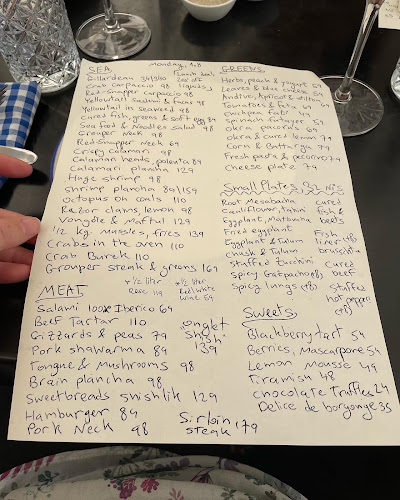 Monday, 1.8
SEA
Gillardeau 34/190
Crab carpaccio 98
Red Snapper Carpaccio 98
Yellowtail Sashimi & 98
Yellowtail in seaweed 98
Cured fish, greens & soft egg 89
Sea food & Noodles salad 98
Grouper Neck 98
Red Snapper Neck 69
Crispy Calamari 98
Calamari heads, polenta 89
Calamari plancha 129
Huge shrimp 98
shrimp plancha 80/159
octopus on coals 110
Razor clams, lemon 98
Vongole & Mafful 129
1/2 kg. Mussles, fries 139
Crabs in the oven 110
Crab Burek 110
Grouper steak & greens 169
MEAT
1/2 liter Rose 119
1/2 liter Red/White Wine 59
Salami 100% Iberico 69
Beef Tartar 110
Gizzards & peas 79
Pork shawarma 89
Tongue & Mushrooms 98
Brain plancha 98
Sweetbreads shishlik 129
Hamburger 89
Pork Neck 98
onglet
139
Sirloin steak 179
GREENS
Herbs, peach & yogurt 59
Leaves & blue cheese 59
Endive, Apricot & stilton
Tomatoes & Feta 69
chickpea fabl 49
Spinach tatziger 59
okra pacora's 69
okra & cured lemon 79
Corn & Bottarga 79
Fresh pasta & pecorino 79
Cheese plate 79
Small Plates
Root Mesabaha
Cauliflower, Tahini
Eggplant, Matbucha
Fried eggplant
Eggplant & Tulum
chush & Tulum
stuffed zucchini
spicy Gazpacho (18)
Spicy lungs (18)
cured fish &
beets
Fish liver (18)
bruschetta
cured beef
stuffed hot pepper (18)
Sweets
Blackberry tart 54
Berries, Mascarpone 54
Lemon Mousse 49
Tiramisu 48
chocolate Truffles 24
Delice de borgonge 35